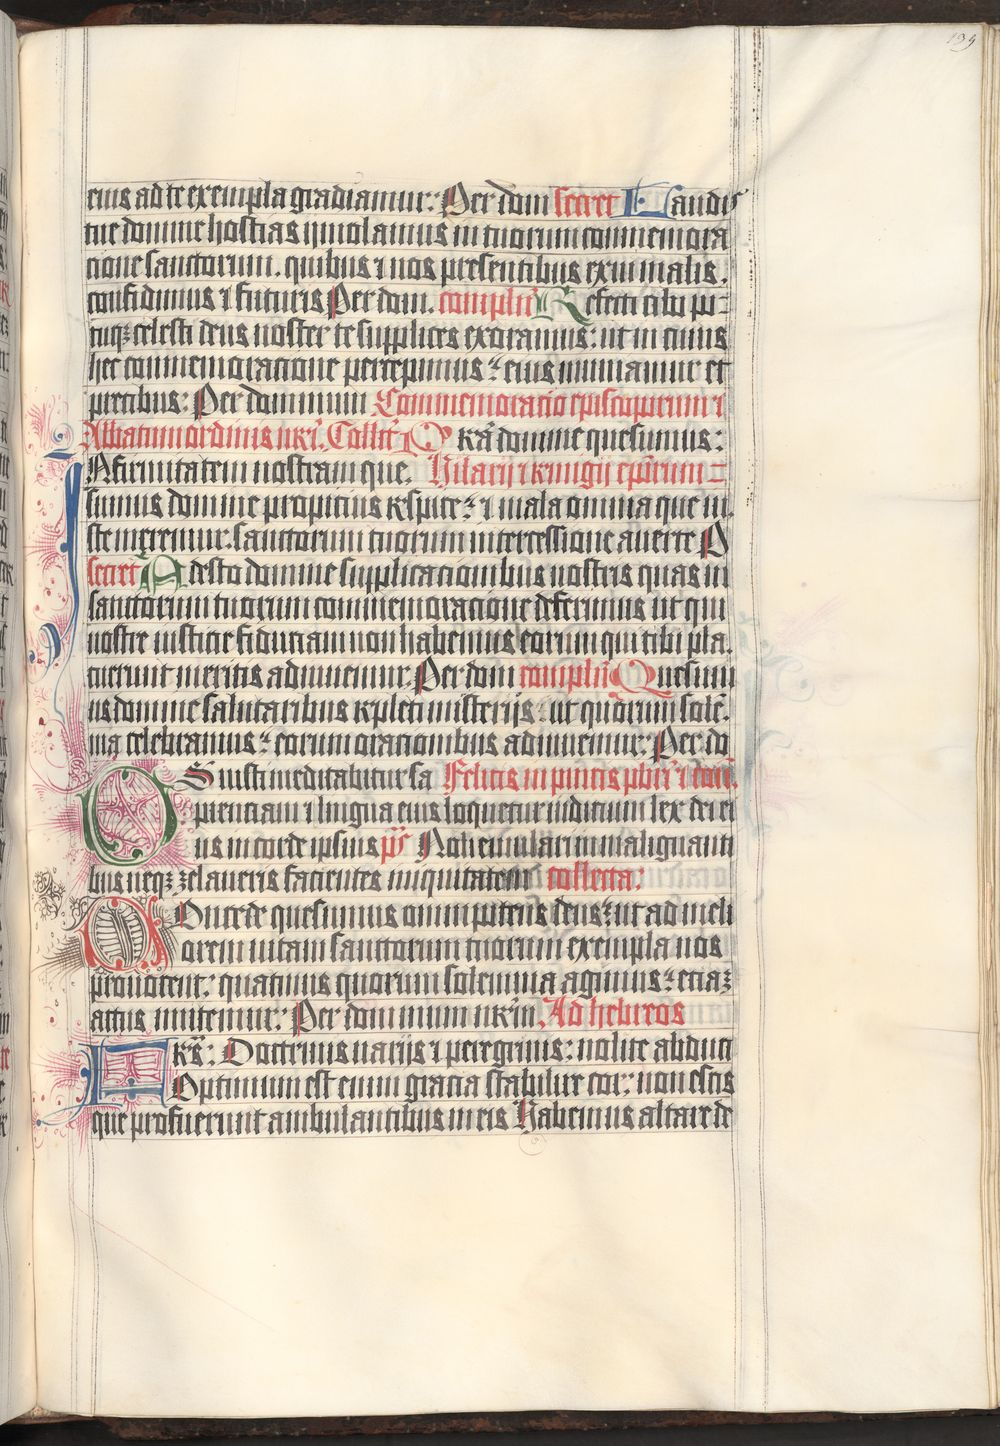 139
eius ad te exempla gradiamur: Per dom secret Laudis
tue domine hostias ymolamus in tuorum commemora
cione sanctorum. quibus ⁊ nos presentibus exui malis.
confidimus ⁊ futuris Per dom. complꝰ Refecti cibo po-
tuqꝫ celesti deus noster te supplices exoramus: ut in cuius
hec commemoracione percepimus: eius muniamur et
precibus: Per dominum Commemoracio episcoporum ⁊
Abbatum ordinis nr̄i. Collc̄ Or̄a domine quesumus:
Nfirmitatem nostram que. Hilarij ⁊ epōrum
sumus domine propicius respice: ⁊ mala omnia que iu
ste meremur. sanctorum tuorum intercessione auerte P
secret Adesto domine supplicacionibus nostris quas in
sanctorum tuorum commemoracione deferimus ut qui
nostre iusticie fiduciam non habemus eorum qui tibi pla.
cuerunt meritis adiuuemur. Per dom complꝰ Quesum
us domine salutaribus repleti misterijs: ut quorum sole.
nia celebramus: eorum oracionibus adiuuemur: Per do
OS iusti meditabitur sa Felicis in pincis pb̄ri ⁊ con̄f.
pienciam ⁊ lingua eius loquetur iudicium lex dei ei
us in corde ipsius pˢ Noli emulari in malignanti
bus neqꝫ zelaueris facientes iniquitatem collecta:
COncede quesumus omnipotens deus: ut ad meli
orem uitam sanctorum tuorum exempla nos
prouocent: quatinus quorum solennia agimus: eciaꝫ
actus imitemur: Per dominum nr̄m Ad hebreos
FRēs: Doctrinis uarijs ⁊ peregrinis: nolite abduci
Optimum est enim gracia stabilire cor: non escis
que profuerunt ambulantibus in eis Habemus altare de